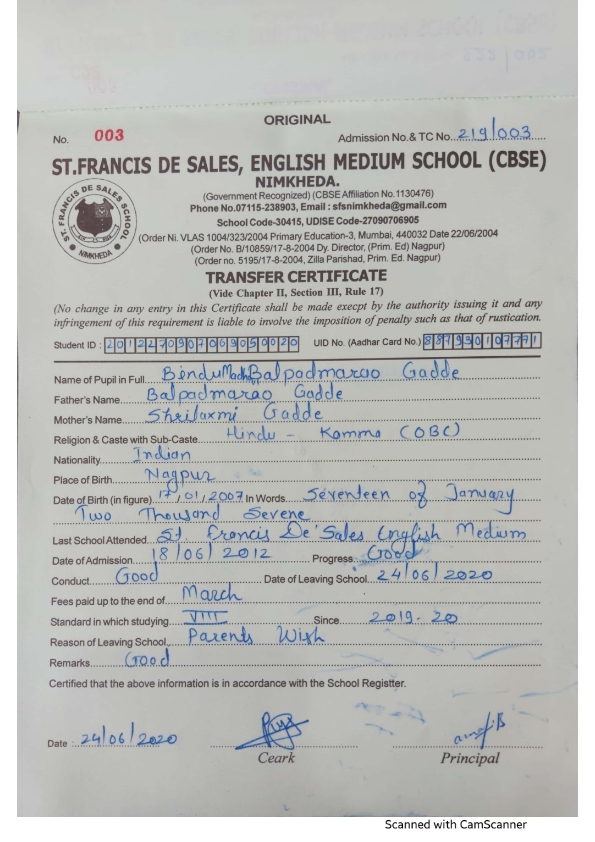 ORIGINAL
No. 003
Admission No.& TC No. 219/003
ST.FRANCIS DE SALES, ENGLISH MEDIUM SCHOOL (CBSE)
NIMKHEDA.
(Government Recognized) (CBSE Affiliation No.1130476)
Phone No.07115-238903, Email : sfsnimkheda@gmail.com
School Code-30415, UDISE Code-27090706905
(Order Ni. VLAS 1004/323/2004 Primary Education-3, Mumbai, 440032 Date 22/06/2004
(Order No. B/10859/17-8-2004 Dy. Director, (Prim. Ed) Nagpur)
(Order no. 5195/17-8-2004, Zilla Parishad, Prim. Ed. Nagpur)
ST. FRANCIS DE SALES SCHOOL
NIMKHEDA
TRANSFER CERTIFICATE
(Vide Chapter II, Section III, Rule 17)
(No change in any entry in this Certificate shall be made execpt by the authority issuing it and any
infringement of this requirement is liable to involve the imposition of penalty such as that of rustication.
Student ID : 2012270907069050020 UID No. (Aadhar Card No.) 887990107771
Name of Pupil in Full Bindu Balpadmarao Gadde
Father's Name Balpadmarao Gadde
Mother's Name Shrilaxmi Gadde
Religion & Caste with Sub-Caste Hindu - Kamma (OBC)
Nationality Indian
Place of Birth Nagpur
Date of Birth (in figure) 17/01/2007 In Words Seventeen of January
Two Thousand Sevene
Last School Attended St Francis De'Sales English Medium
Date of Admission 18/06/2012 Progress Good
Conduct Good Date of Leaving School 24/06/2020
Fees paid up to the end of March
Standard in which studying VIII Since 2019-20
Reason of Leaving School Parents Wish
Remarks Good
Certified that the above information is in accordance with the School Registter.
Date : 24/06/2020
Ceark
Principal
Scanned with CamScanner